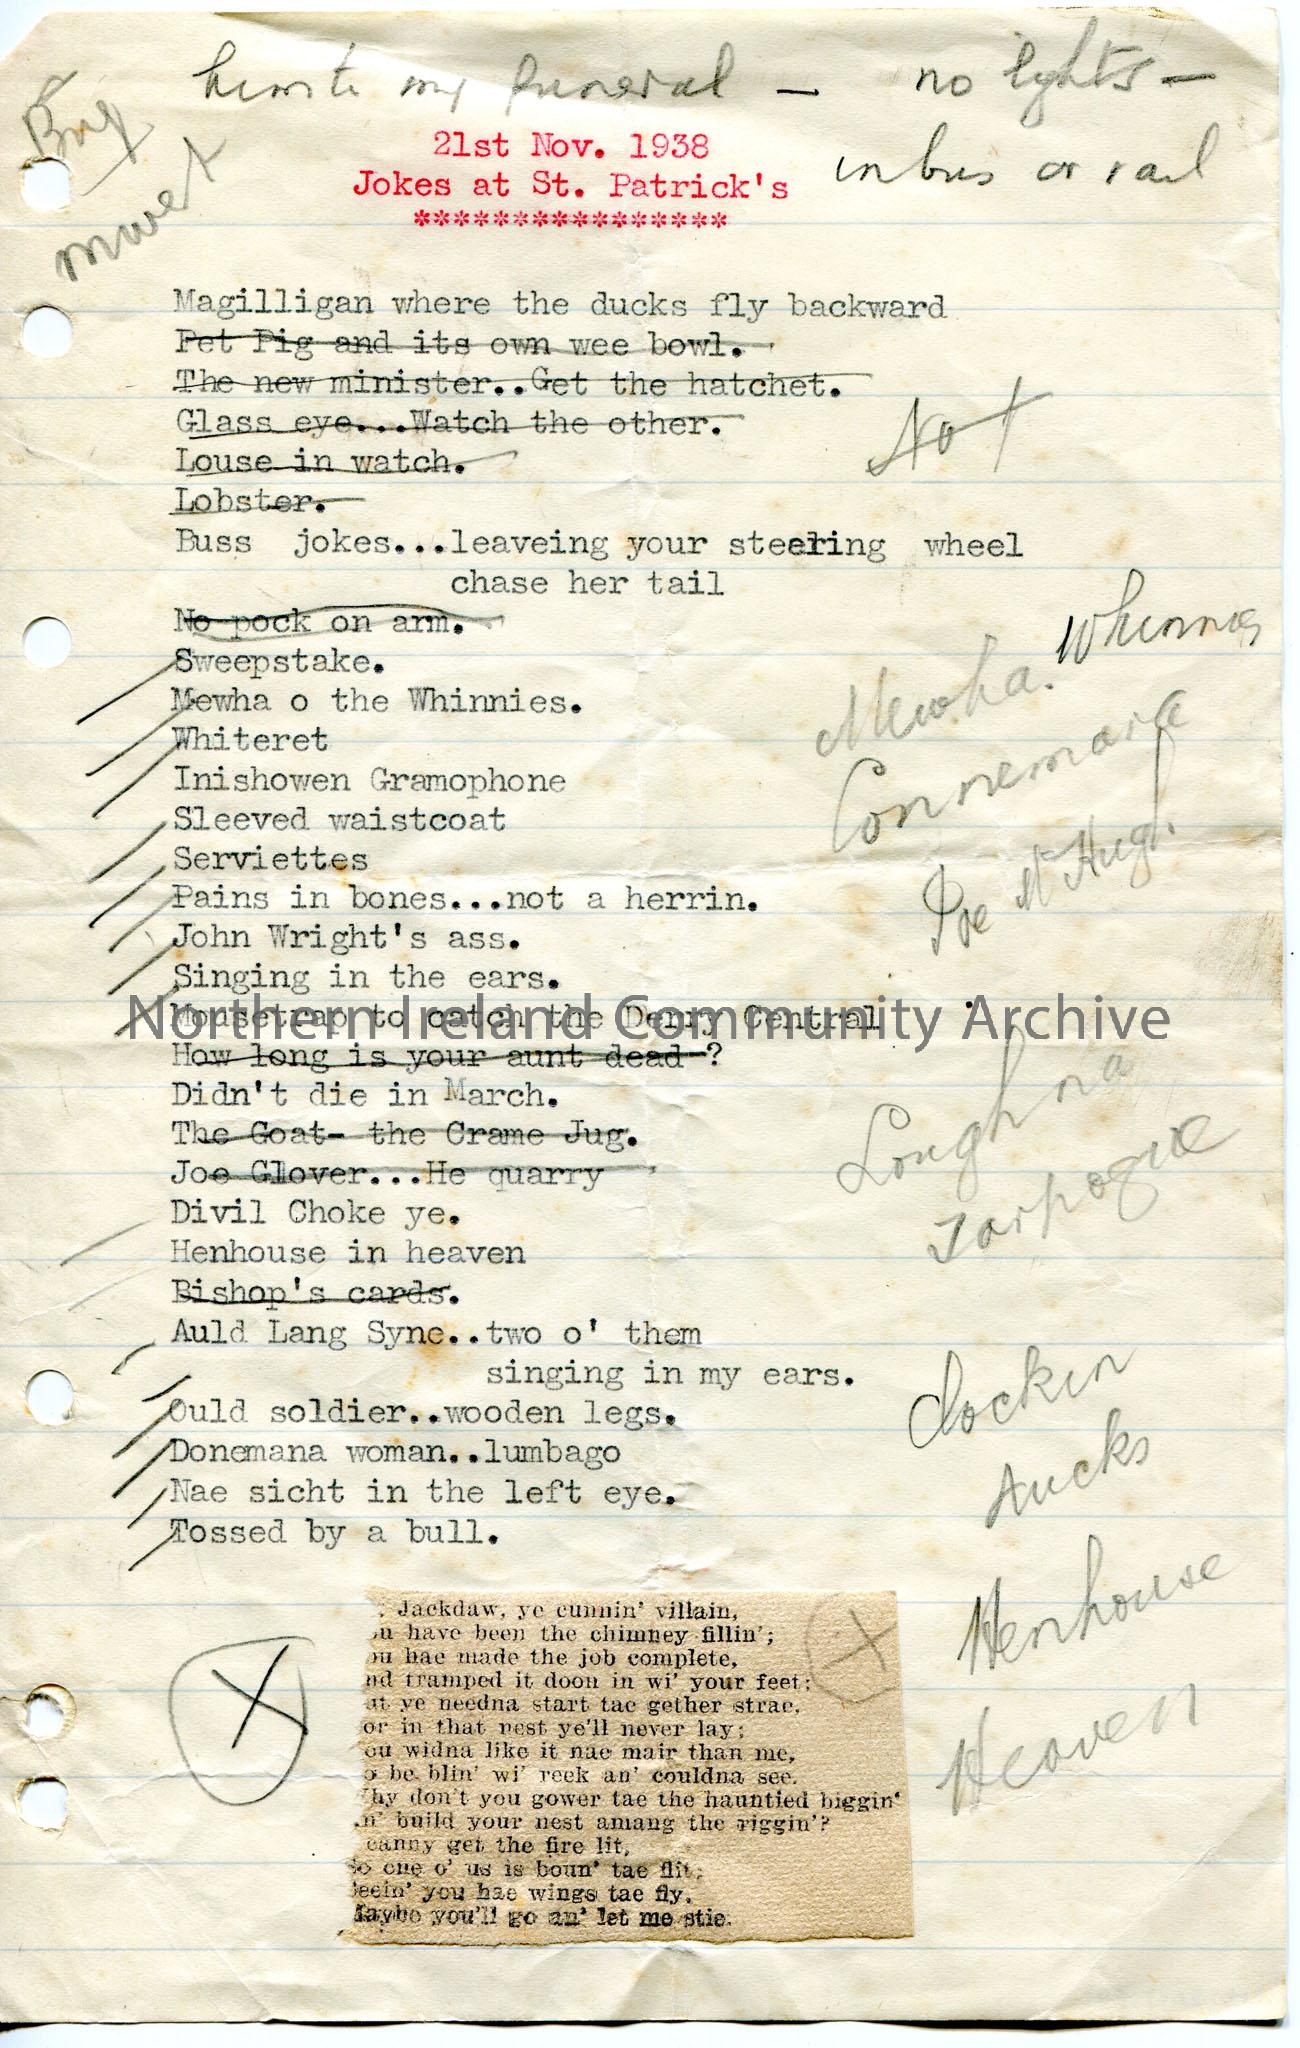 my funeral — no lights —
Big
in bus or rail
21st Nov. 1938
Jokes at St. Patrick's
****************
Magilligan where the ducks fly backward
Pet Pig and its own wee bowl.
The new minister..Get the hatchet.
Glass eye...Watch the other.
Not
Louse in watch.
Lobster.
Buss jokes...leaveing your steering wheel
chase her tail
No pock on arm.
Sweepstake.
Mewha. Whinnies
Mewha o the Whinnies.
Whiteret
Connemara
Inishowen Gramophone
Sleeved waistcoat
Serviettes
Joe McHugh
Pains in bones...not a herrin.
John Wright's ass.
Singing in the ears.
Mousetrap to catch the Derry Central
Northern Ireland Community Archive
How long is your aunt dead ?
Didn't die in March.
The Goat- the Crame Jug.
Lough na
Joe Glover...He quarry
Divil Choke ye.
Henhouse in heaven
Bishop's cards.
Auld Lang Syne..two o' them
singing in my ears.
Clockin
Ould soldier..wooden legs.
Donemana woman..lumbago
Nae sicht in the left eye.
Tossed by a bull.
Henhouse
Heaven
Jackdaw, ye cunnin' villain,
have been the chimney fillin';
hae made the job complete,
tramped it doon in wi' your feet;
ye needna start tae gether strae,
or in that nest ye'll never lay;
widna like it nae mair than me,
be blin' wi' reek an' couldna see.
don't you gower tae the hauntied biggin'
build your nest amang the riggin'?
canny get the fire lit,
one o' us is boun' tae flit;
you hae wings tae fly,
Maybe you'll go an' let me stie.
X
X